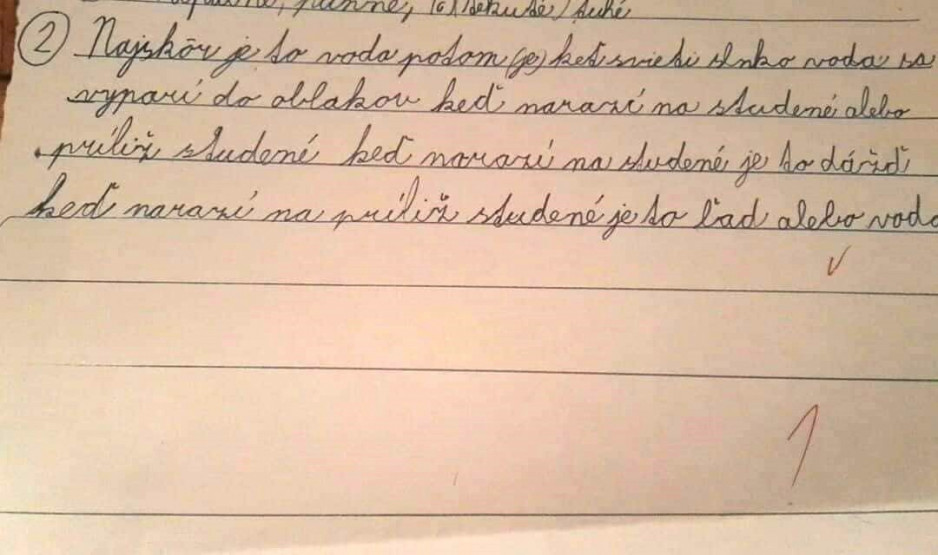 tekuté, tuhé
② Najskôr je to voda potom (je) keď svieti slnko voda sa
vyparí do oblakov keď narazí na studené alebo
príliž studené keď narazí na studené je to dážď
keď narazí na príliž studené je to ľad alebo voda
✓
1